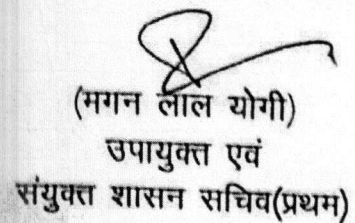 (मगन लाल योगी)
उपायुक्त एवं
संयुक्त शासन सचिव(प्रथम)